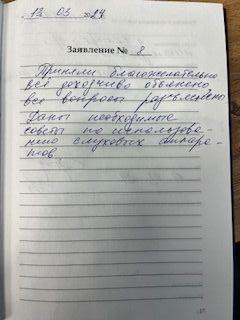 13 03 2024
Заявление № 8
Приняли благожелательно
всё доходчиво объяснено
все вопросы разъяснены
Даны необходимые
советы по использова-
нию слуховых аппара-
тов.